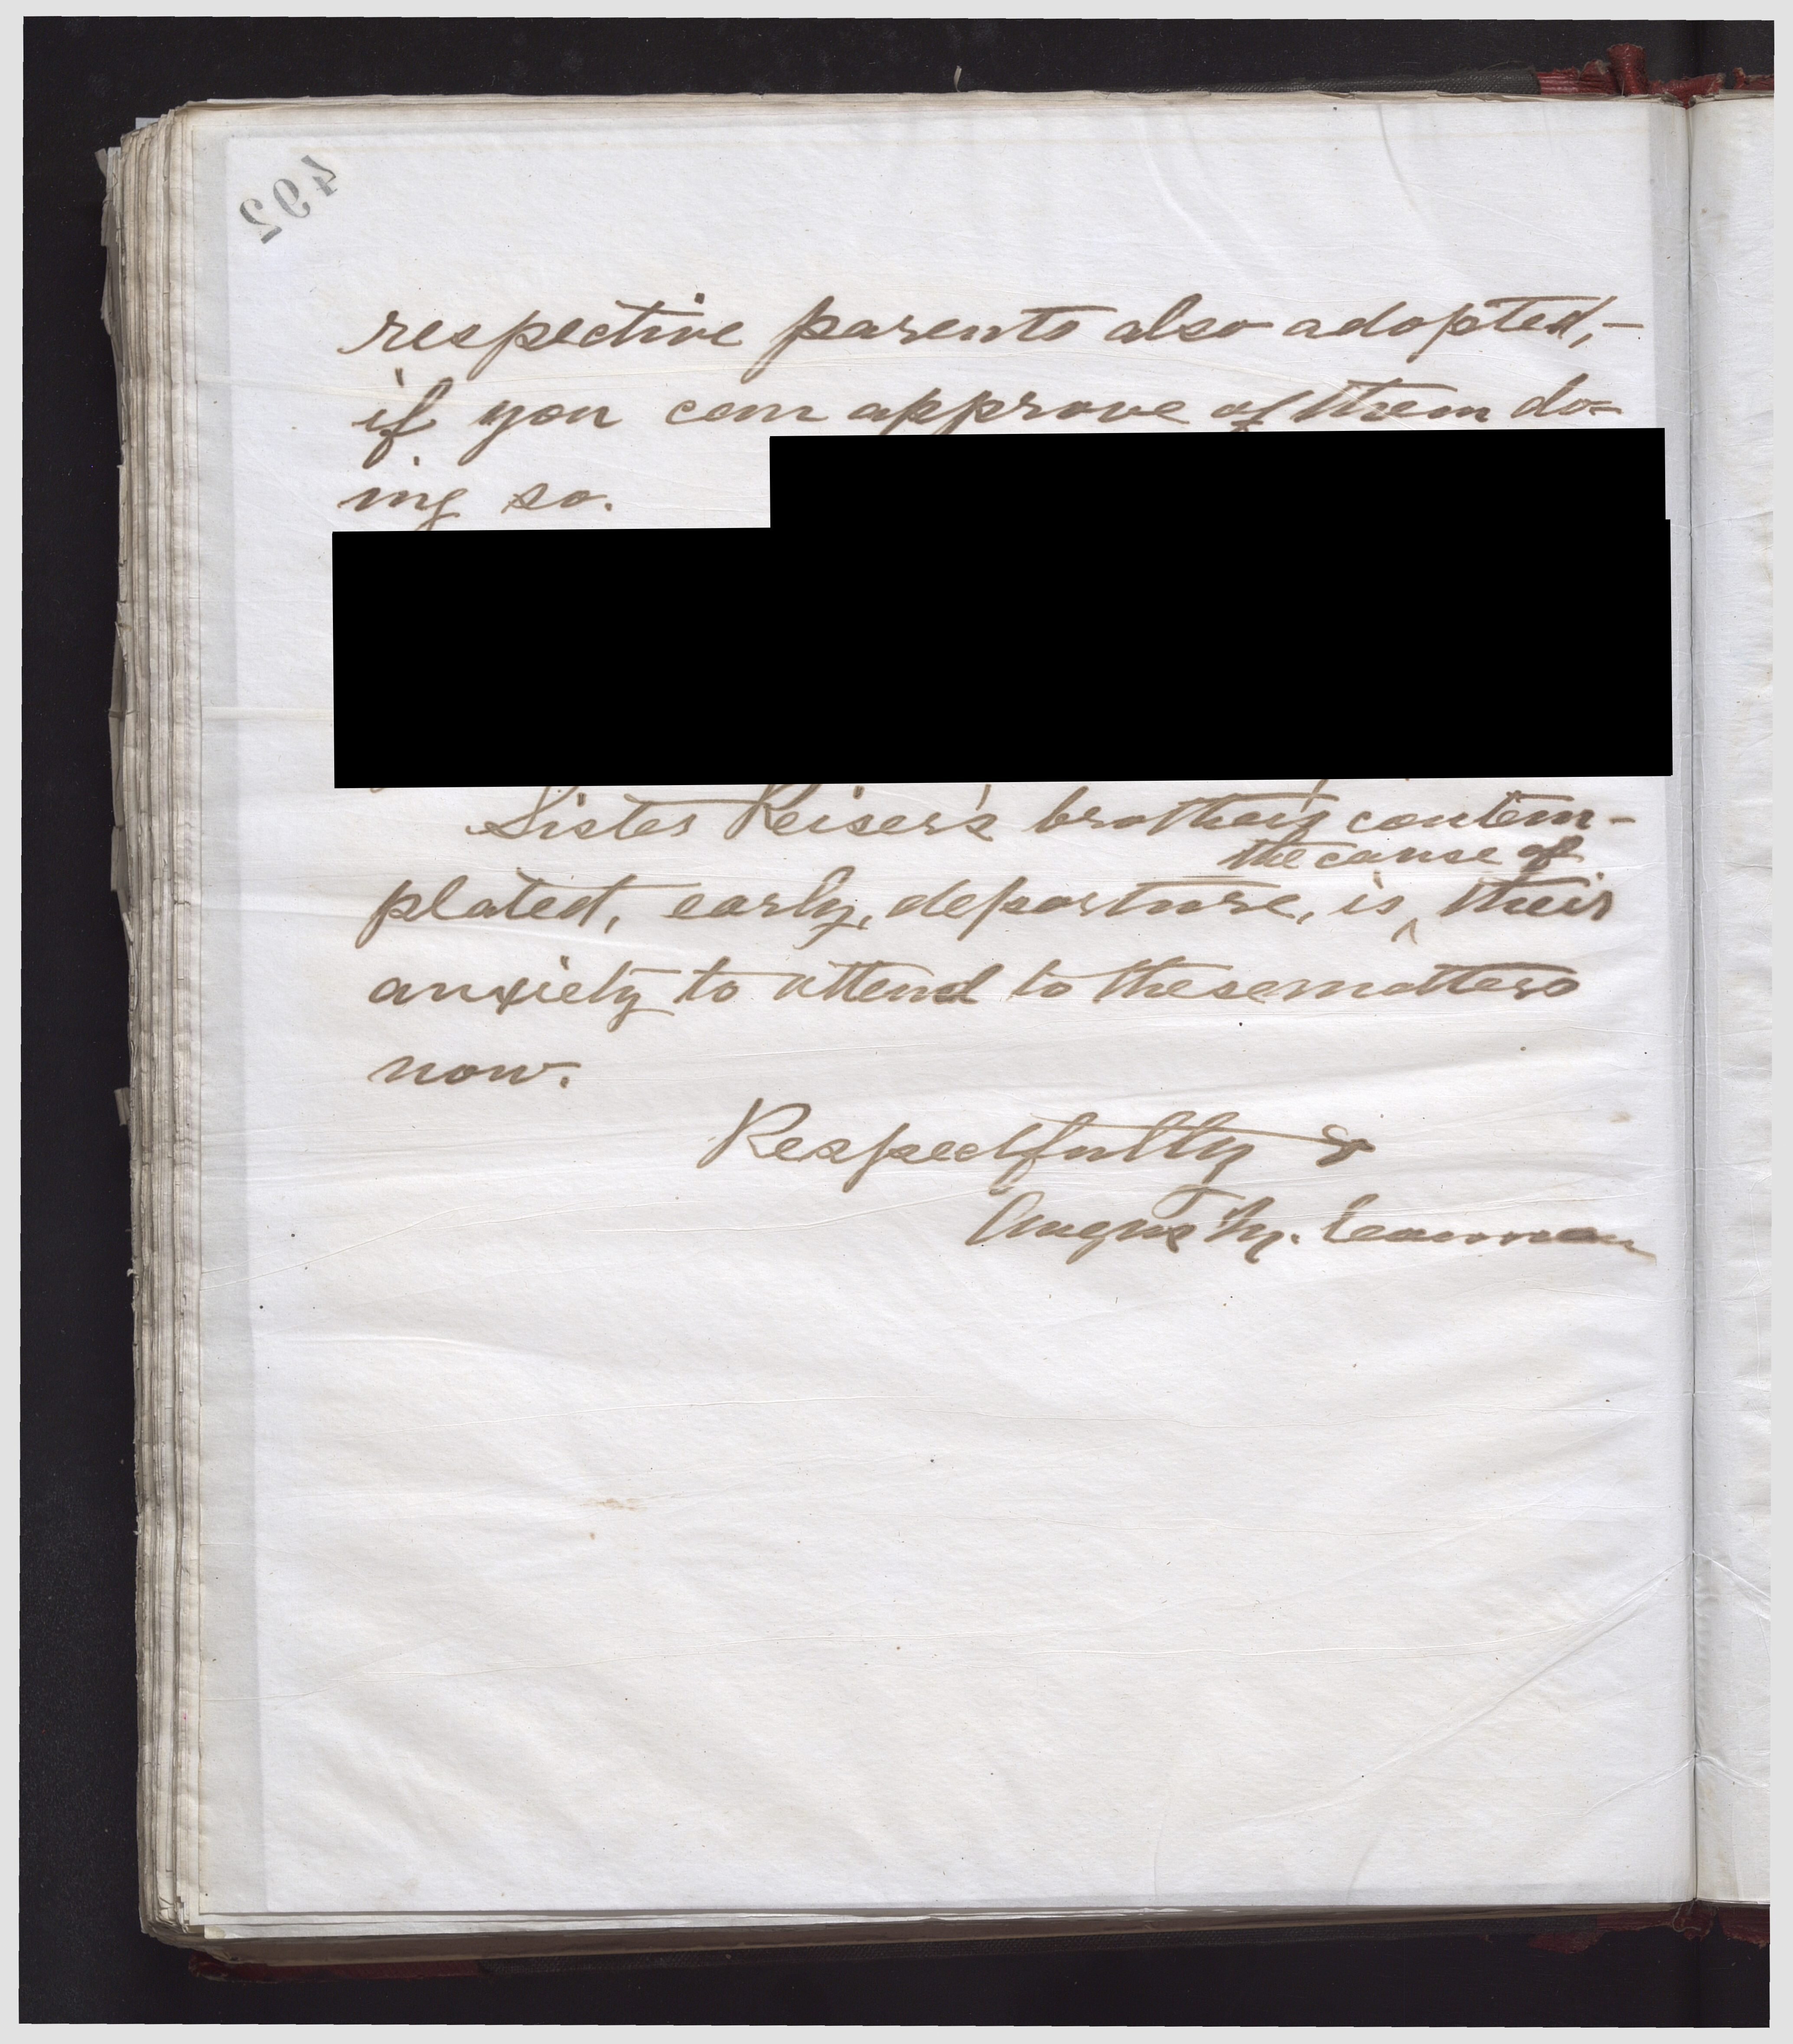 492
respective parents also adopted,-
if you can approve of them do-
ing so.
Sister Keiser's brother's contem-
the cause of
plated, early, departure, is ^ their
anxiety to attend to these matters
now.
Respectfully &
Angus M. Cannon